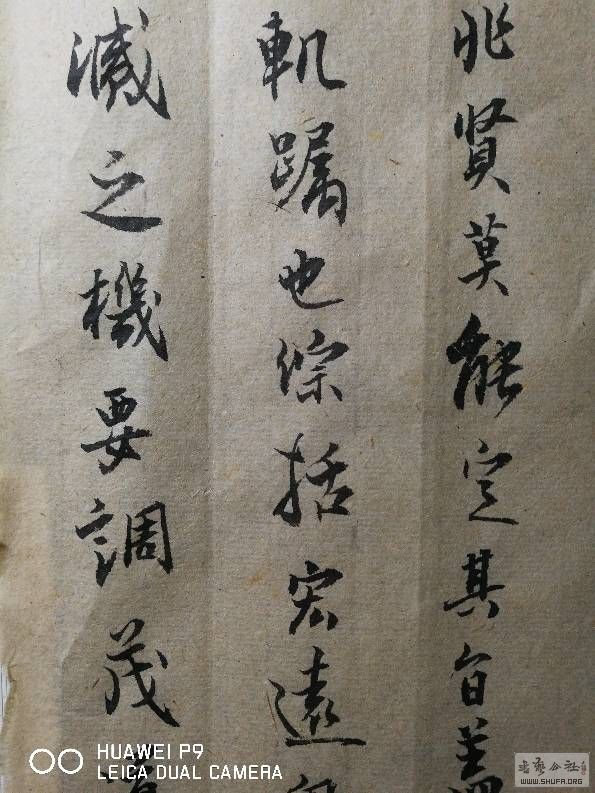 非賢莫能定其旨蓋
軌躅也綜括宏遠
滅之機要調茂
HUAWEI P9
LEICA DUAL CAMERA
书艺公社
WWW.SHUFA.ORG